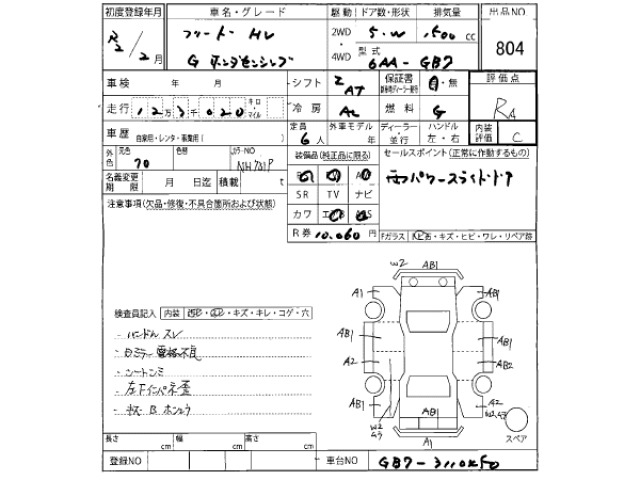 初度登録年月
車名・グレード
駆動
ドア数・形状
排気量
出品NO
R2
2月
フリード HV
2WD
・
4WD
5.W
1500 cc
804
型式
G ホンダセンシング
6AA-GB7
車検 年 月
シフト
2 AT
保証書
・無
燃料
G
評価点
RA
走行
12万3千020
キロ
・
マイル
冷房
AC
車歴
自家用・レンタ・事業用( )
定員
6人
外車モデル
年
ディーラー
・
並行
ハンドル
左・右
内装
評価
C
外
色
元色
70
色替
カラーNO
NH731P
装備品(純正品に限る)
セールスポイント(正常に作動するもの)
両パワースライドドア
名義変更
期限
月 日迄
積載
t
SR TV ナビ
カワ
R券
10,060円
Fガラス
・キズ・ヒビ・ワレ・リペア跡
注意事項(欠品・修復・不具合箇所および状態)
検査員記入
内装
・キズ・キレ・コゲ・穴
- ハンドル スレ
- シートシミ
W2
AB1
A1
AB1
AB1
AB1
A2
AB2
AB1
A2
AB1
W2
A3
W2 A3
A1
スペア
長さ
cm
幅
cm
高さ
cm
登録NO
車台NO
GB7-3110850